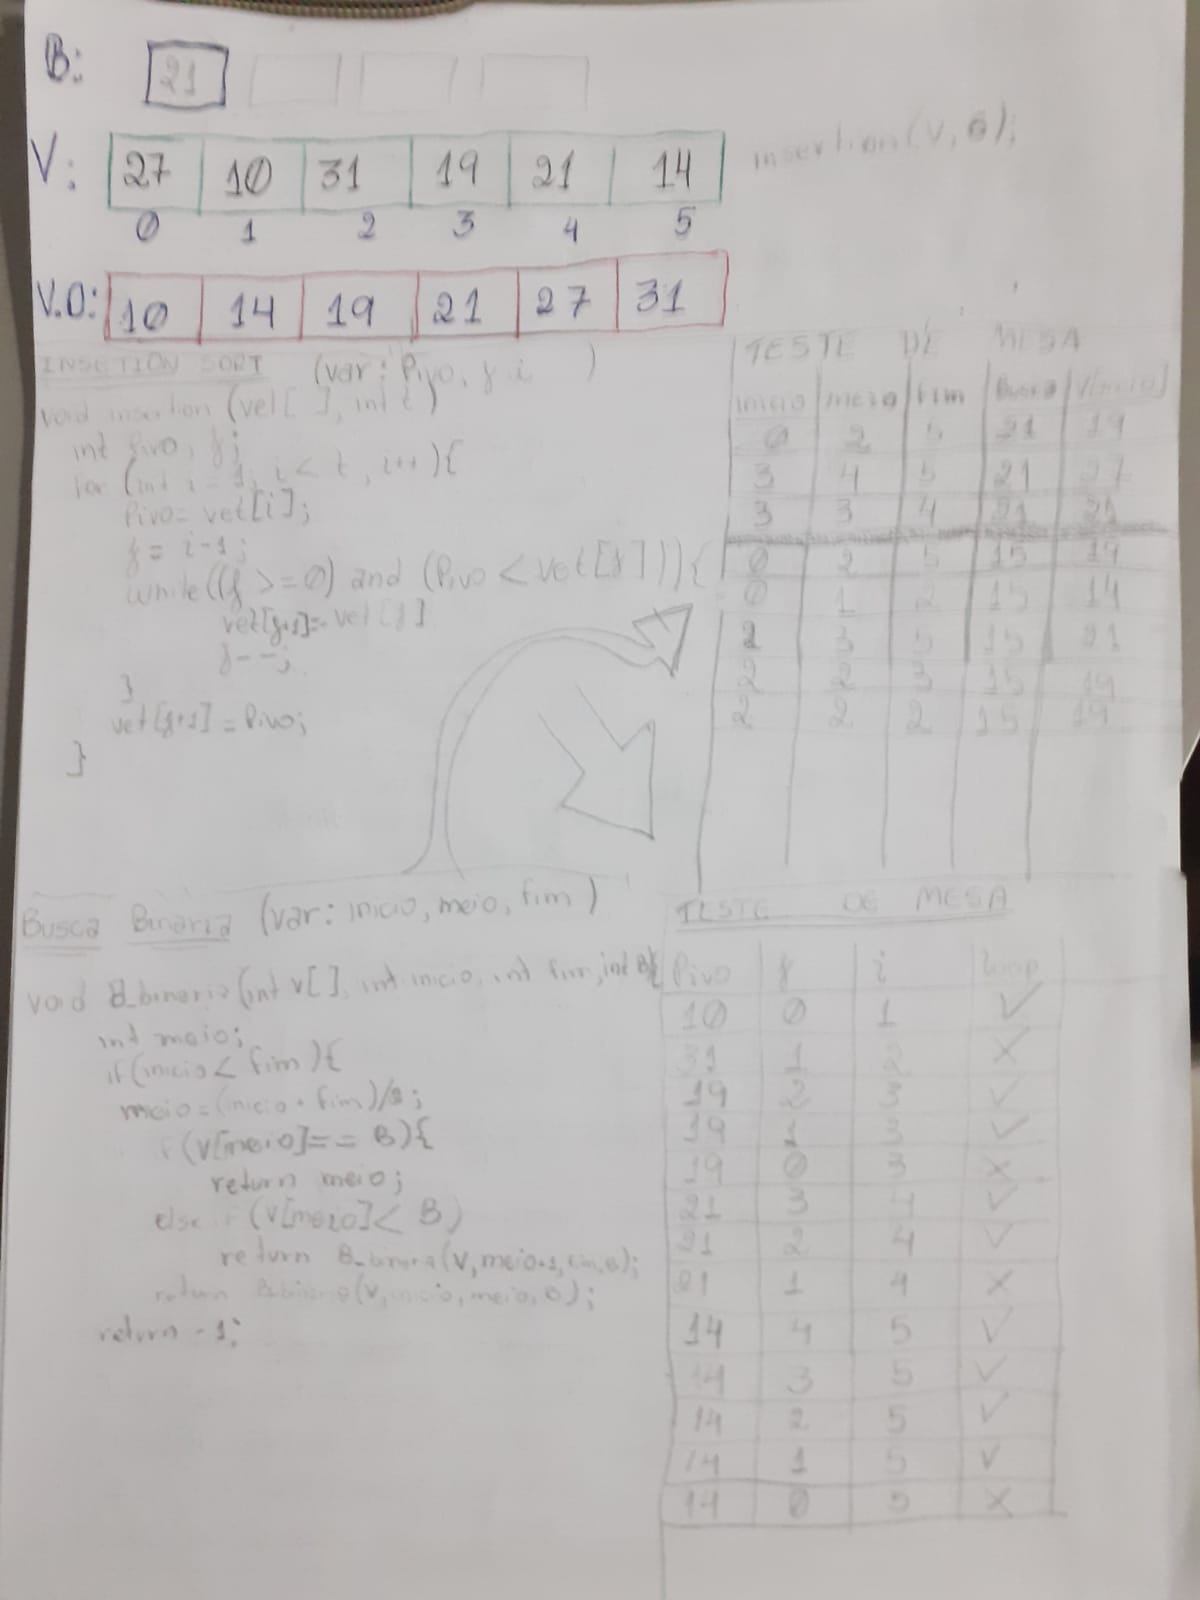 B: 21
insertion(V, 6);
V: 27 10 31 19 21 14
0 1 2 3 4 5
V.O: 10 14 19 21 27 31
INSETION SORT (var: Pivo, j i )
void insertion (vet[ ], int t)
int pivo, j;
for (int i = 1; i < t, i++){
Pivo = vet[i];
j = i-1;
while((j >= 0) and (Pivo < vet[j])){
vet[j+1]= vet[j]
j--;
}
vet[j+1] = Pivo;
}
TESTE DE MESA
inicio meio fim Busca V[meio]
0 2 5 21 19
3 4 5 21 27
3 3 4 21 21
0 2 5 15 19
0 1 2 15 14
2 3 5 15 21
2 2 3 15 19
2 2 2 15 19
Busca Binaria (var: inicio, meio, fim)
void B_binaria(int v[], int inicio, int fim, int B){
int meio;
if(inicio < fim){
meio=(inicio + fim)/2;
if(v[meio]== B){
return meio;
else if (v[meio]< B)
return B_binaria(V, meio+1, fim, B);
return B_binaria(V, inicio, meio, B);
return -1;
TESTE DE MESA
Pivo j i Loop
10 0 1 ✓
31 1 2 X
19 2 3 ✓
19 1 3 ✓
19 0 3 X
21 3 4 ✓
21 2 4 ✓
21 1 4 X
14 4 5 ✓
14 3 5 ✓
14 2 5 ✓
14 1 5 ✓
14 0 5 X